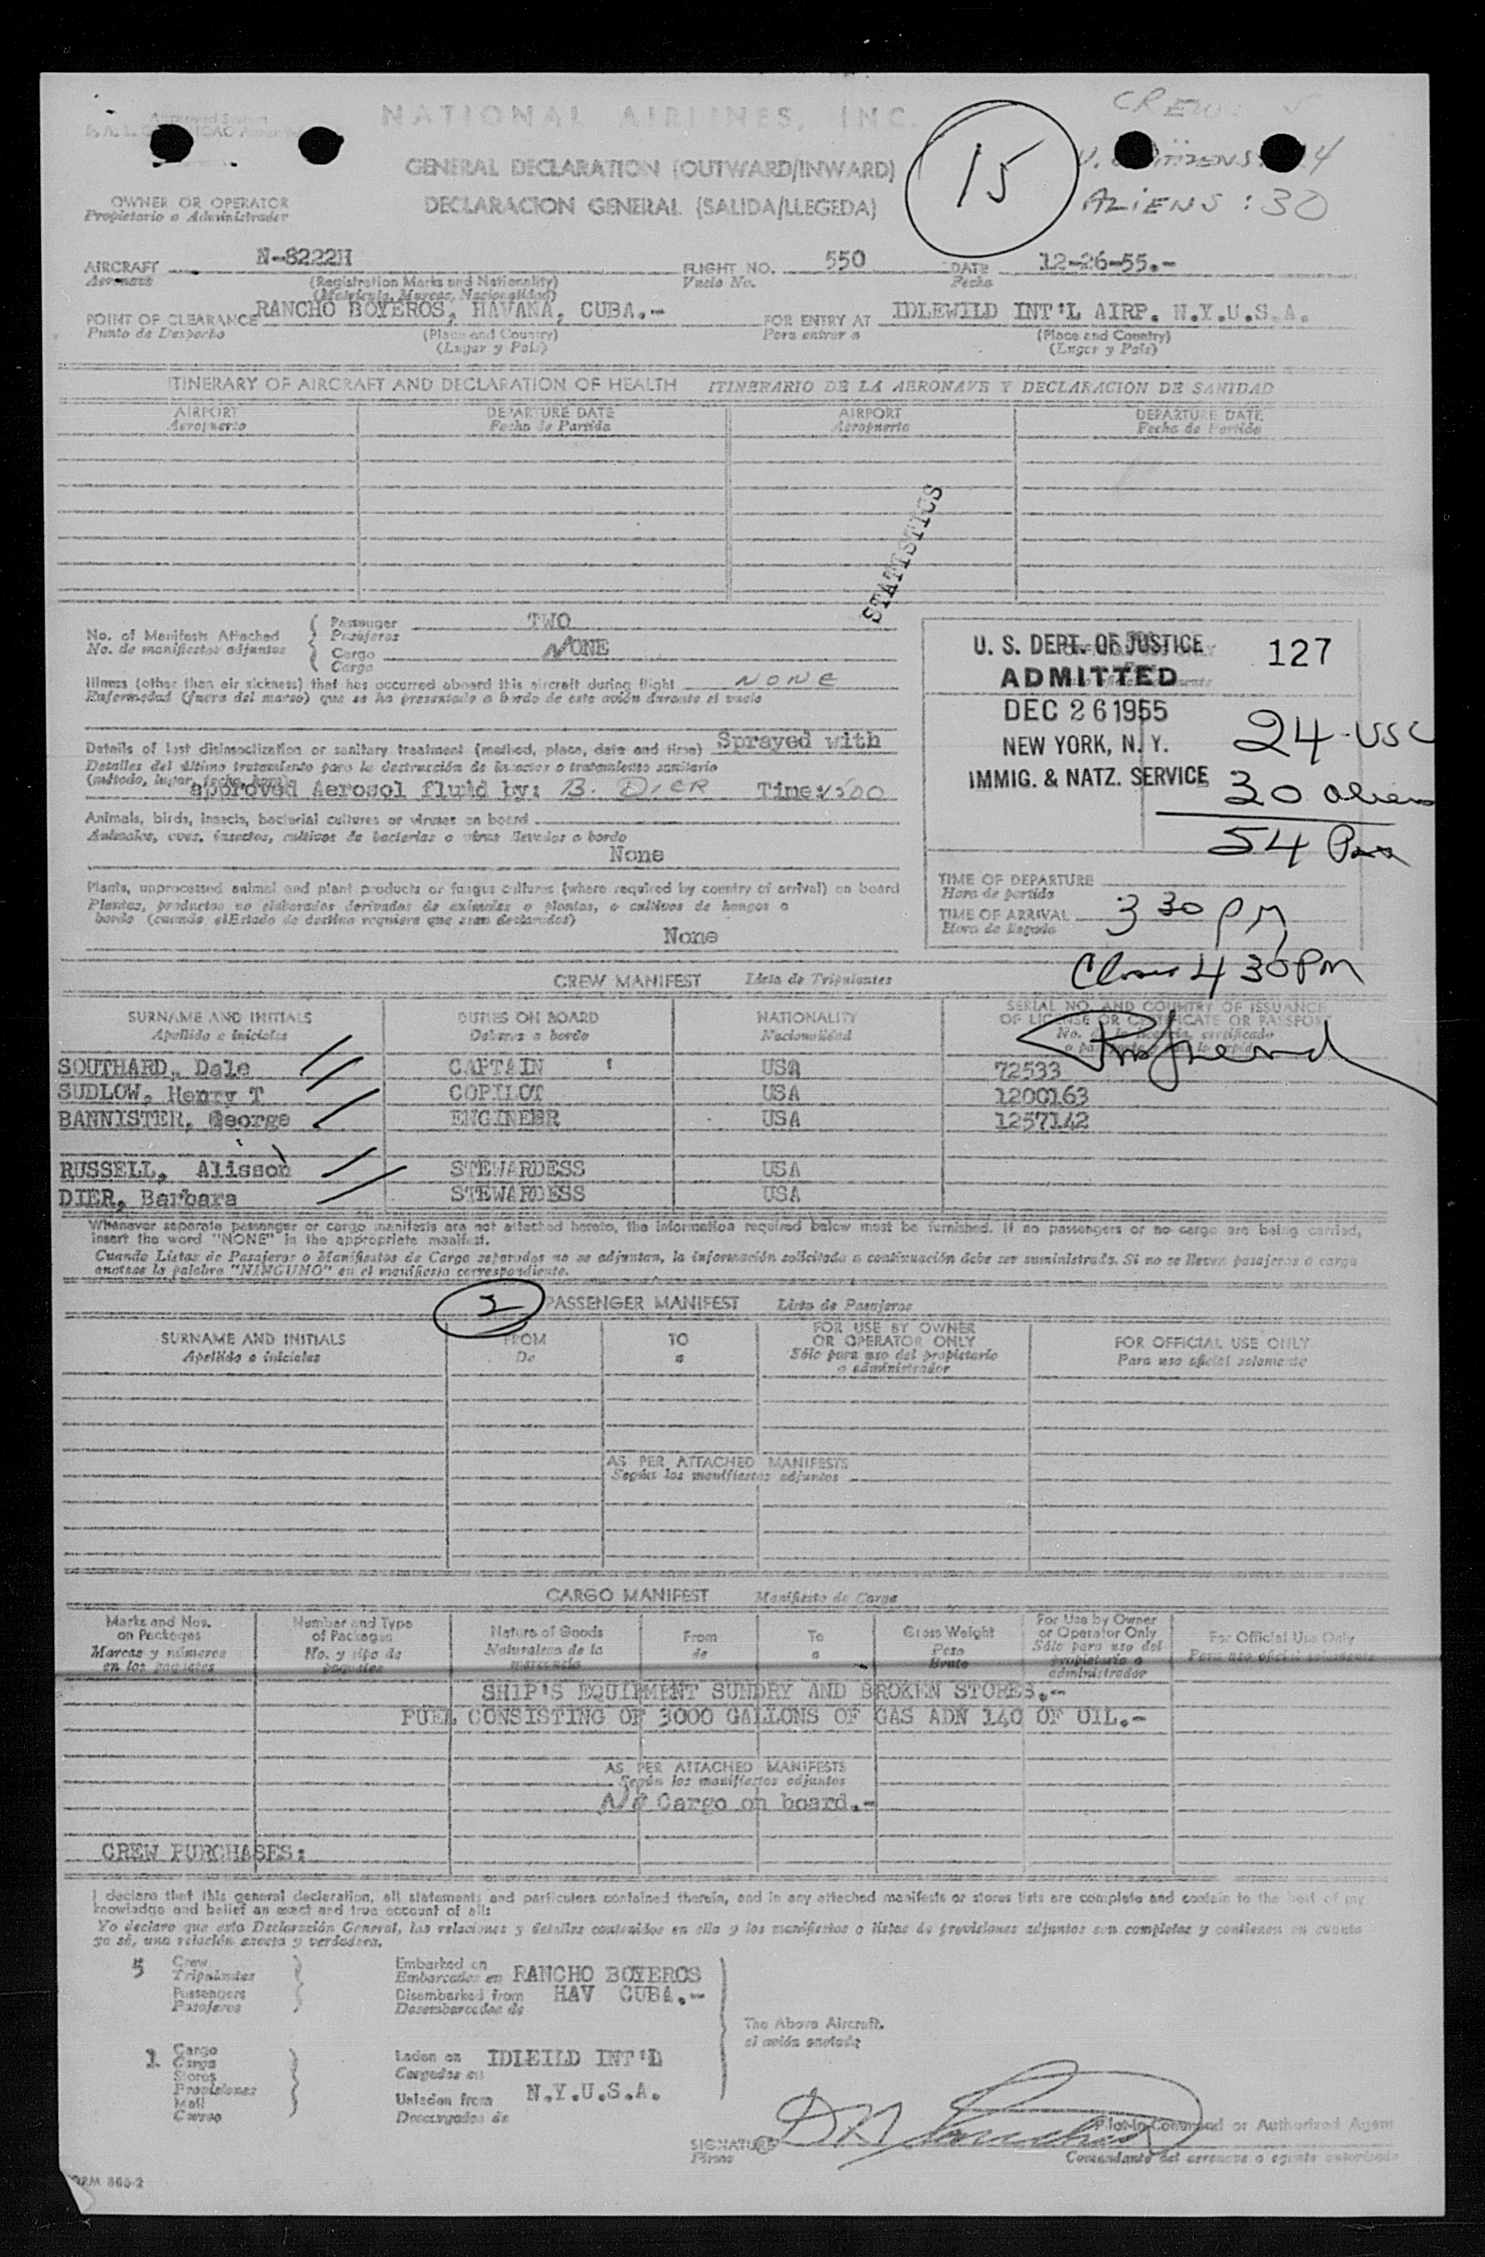 NATIONAL AIRLINES, INC.
CREW: 5
GENERAL DECLARATION (OUTWARD/INWARD)
15
OWNER OR OPERATOR
Propietario o Administrador
DECLARACION GENERAL (SALIDA/LLEGEDA)
ALIENS : 30
AIRCRAFT N-8222H FLIGHT NO. 550 DATE 12-26-55.-
Aeronave (Registration Marks and Nationality) Vuelo No. Fecha
(Matricula, Marcas, Nacionalidad)
POINT OF CLEARANCE RANCHO BOYEROS, HAVANA, CUBA.- FOR ENTRY AT IDLEWILD INT'L AIRP. N.Y.U.S.A.
Punto de Despacho (Place and Country) Para entrar a (Place and Country)
(Lugar y Pais) (Lugar y Pais)
ITINERARY OF AIRCRAFT AND DECLARATION OF HEALTH ITINERARIO DE LA AERONAVE Y DECLARACION DE SANIDAD
AIRPORT DEPARTURE DATE AIRPORT DEPARTURE DATE
Aeropuerto Fecha de Partida Aeropuerto Fecha de Partida
STATISTICS
No. of Manifests Attached Passenger TWO
No. de manifiestos adjuntos Pasajeros
Cargo NONE
Carga
U. S. DEPT. OF JUSTICE 127
ADMITTED
DEC 26 1955
NEW YORK, N. Y.
IMMIG. & NATZ. SERVICE
24 - USC
30 aliens
54 Pax
Illness (other than air sickness) that has occurred aboard this aircraft during flight NONE
Enfermedad (fuera del mareo) que se ha presentado a bordo de este avión durante el vuelo
Details of last disinsectization or sanitary treatment (method, place, date and time) Sprayed with
Detalles del último tratamiento para la destrucción de insectos o tratamiento sanitario
(método, lugar, fecha, hora)
approved Aerosol fluid by: B. DIER Time:
Animals, birds, insects, bacterial cultures or viruses on board
Animales, aves, insectos, cultivos de bacterias o virus llevados a bordo
None
Plants, unprocessed animal and plant products or fungus cultures (where required by country of arrival) on board
Plantas, productos no elaborados derivados de animales o plantas, o cultivos de hongos a
bordo (cuando el Estado de destino requiera que sean declarados)
None
TIME OF DEPARTURE
Hora de partida
TIME OF ARRIVAL 3 30 PM
Hora de llegada
Close 4 30 PM
CREW MANIFEST Lista de Tripulantes
SURNAME AND INITIALS DUTIES ON BOARD NATIONALITY SERIAL NO. AND COUNTRY OF ISSUANCE
Apellido e iniciales Deberes a bordo Nacionalidad OF LICENSE OR CERTIFICATE OR PASSPORT
SOUTHARD, Dale CAPTAIN USA 72533
SUDLOW, Henry T COPILOT USA 1200163
BANNISTER, George ENGINEER USA 1257142
RUSSELL, Alisson STEWARDESS USA
DIER, Barbara STEWARDESS USA
Whenever separate passenger or cargo manifests are not attached hereto, the information required below must be furnished. If no passengers or no cargo are being carried,
insert the word "NONE" in the appropriate manifest.
Cuando Listas de Pasajeros o Manifiestos de Cargo separados no se adjuntan, la información solicitada a continuación debe ser suministrada. Si no se llevan pasajeros o carga
anotese la palabra "NINGUNO" en el manifiesto correspondiente.
2 PASSENGER MANIFEST Lista de Pasajeros
SURNAME AND INITIALS FROM TO FOR USE BY OWNER OR OPERATOR ONLY FOR OFFICIAL USE ONLY
Apellido e iniciales De a Sólo para uso del propietario o administrador Para uso oficial solamente
AS PER ATTACHED MANIFESTS
Según los manifiestos adjuntos
CARGO MANIFEST Manifiesto de Carga
Marks and Nos. on Packages Number and Type of Packages Nature of Goods From To Gross Weight For Use by Owner or Operator Only For Official Use Only
Marcas y números en los paquetes No. y tipo de paquetes Naturaleza de la mercancia de a Peso Bruto Sólo para uso del propietario o administrador Para uso oficial solamente
SHIP'S EQUIPMENT SUNDRY AND BROKEN STORES.-
FUEL CONSISTING OF 3000 GALLONS OF GAS ADN 140 OF OIL.-
AS PER ATTACHED MANIFESTS
Según los manifiestos adjuntos
Cargo on board.-
CREW PURCHASES:
I declare that this general declaration, all statements and particulars contained therein, and in any attached manifests or stores lists are complete and contain to the best of my
knowledge and belief an exact and true account of all:
Yo declaro que esta Declaración General, las relaciones y detalles contenidos en ella y los manifiestos o listas de provisiones adjuntos son completos y contienen en cuanto
yo sé, una relación exacta y verdadera.
5 Crew Embarked on RANCHO BOYEROS
Tripulantes Embarcados en
Passengers Disembarked from HAV CUBA.-
Pasajeros Desembarcados de
The Above Aircraft.
el avión anotado
1 Cargo Laden on IDLEILD INT'L
Carga Cargados en
Stores
Provisiones Unladen from N.Y.U.S.A.
Mail Descargados de
Correo
Pilot-in-Command or Authorized Agent
SIGNATURE
Firma Comandante del aeronave o agente autorizado